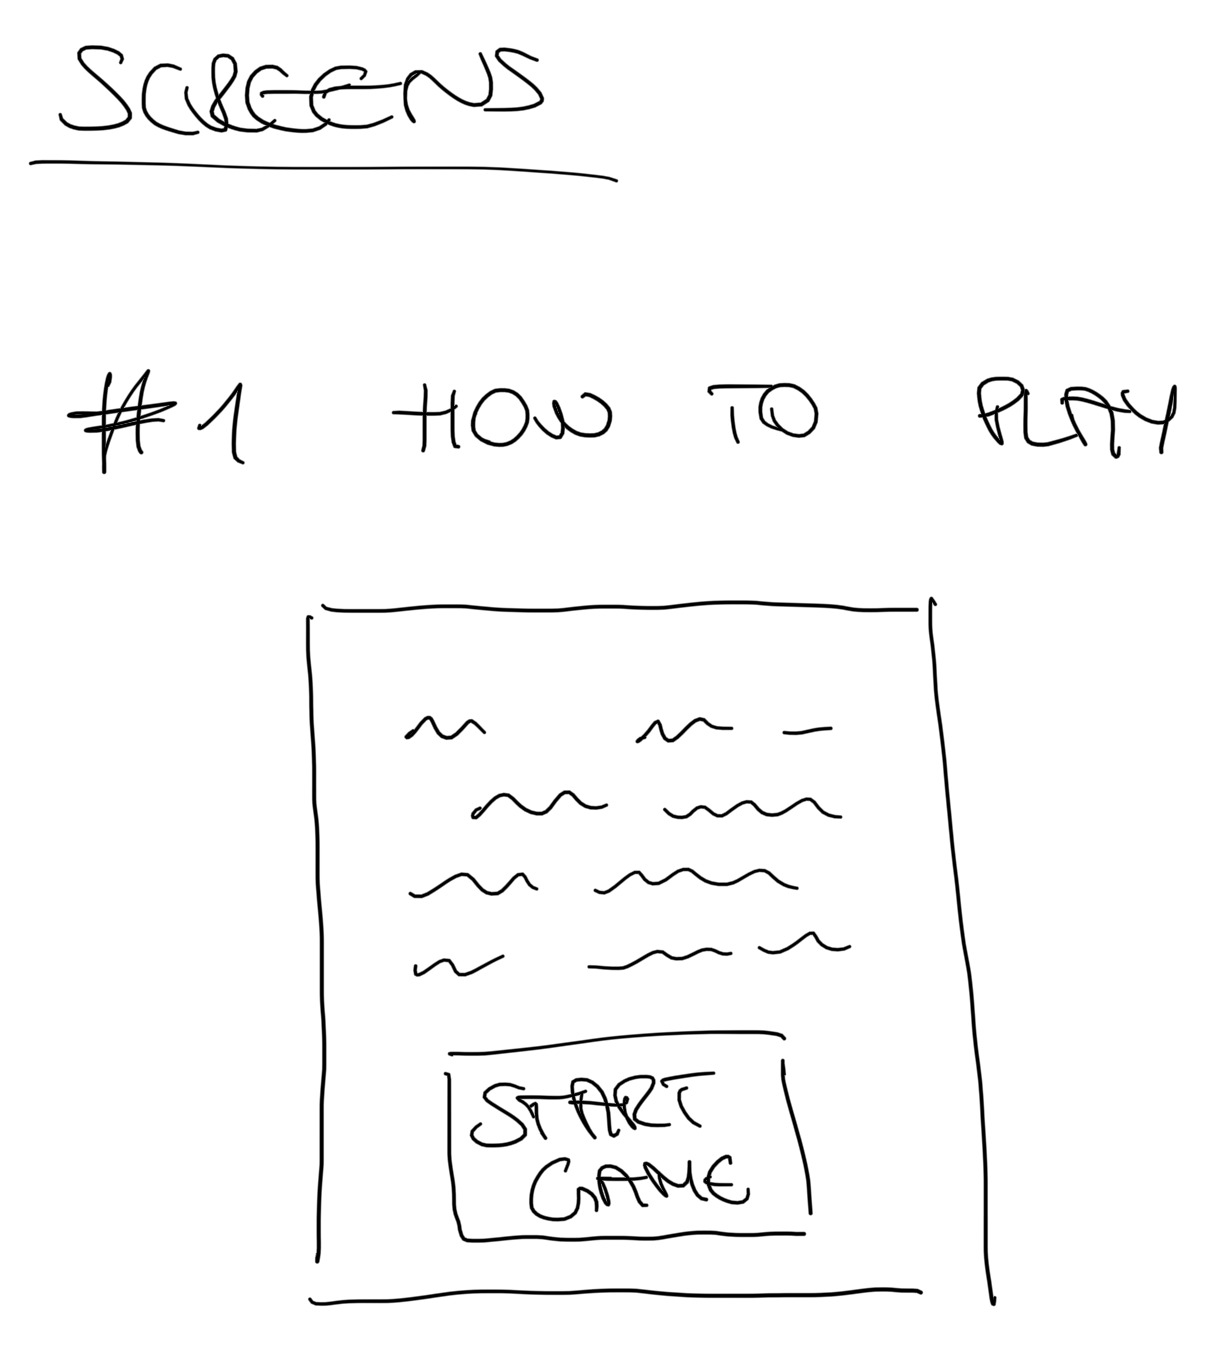 SCREENS
#1 HOW TO PLAY
START
GAME